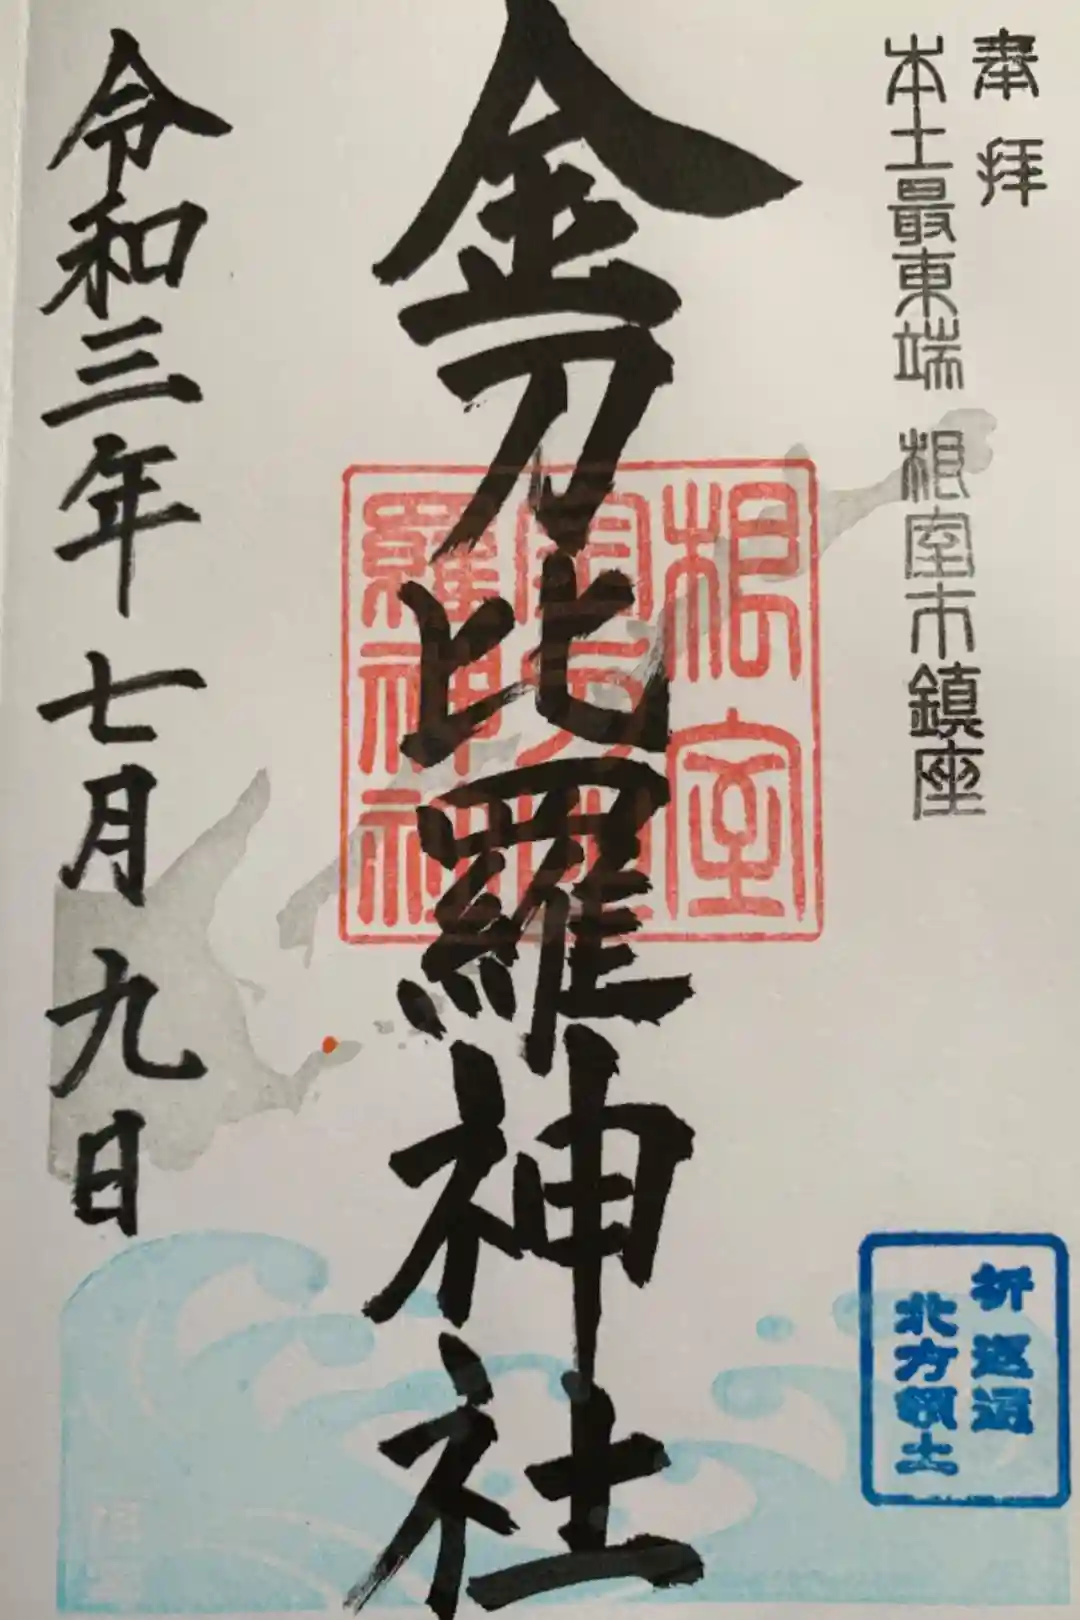 奉拝
本土最東端 根室市鎮座
金刀比羅神社
根室
金刀比
羅神社
令和三年 七月 九日
祈 返還
北方領土